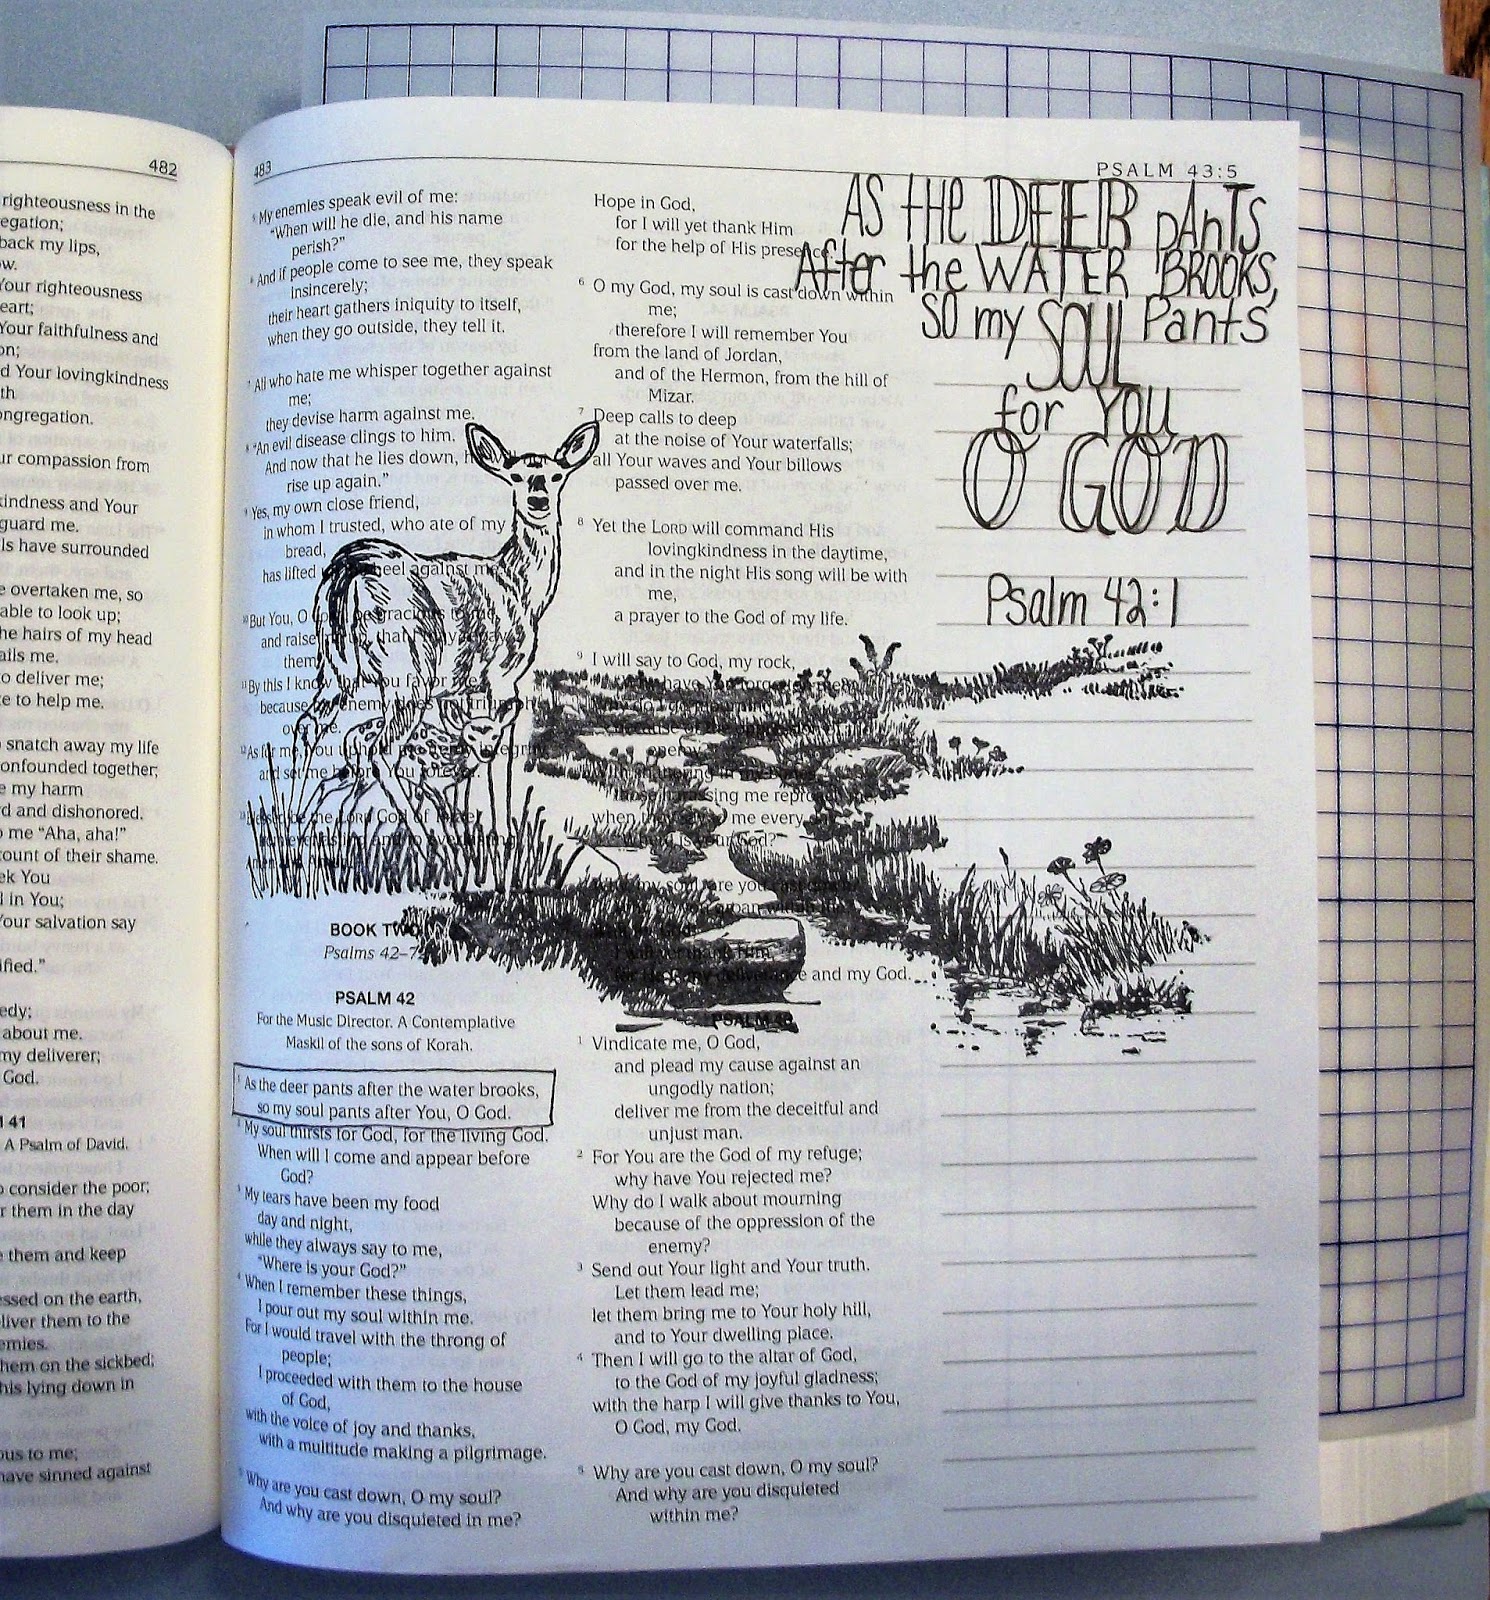 482
righteousness in the
egation;
back my lips,
w.
Your righteousness
eart;
Your faithfulness and
on;
d Your lovingkindness
th
ongregation.
ur compassion from
kindness and Your
guard me.
ls have surrounded
e overtaken me, so
able to look up;
he hairs of my head
ails me.
o deliver me;
e to help me.
snatch away my life
onfounded together;
e my harm
d and dishonored.
o me "Aha, aha!"
ount of their shame.
ek You
l in You;
Your salvation say
ified."
edy;
about me.
my deliverer;
God.
41
A Psalm of David.
o consider the poor;
r them in the day
e them and keep
essed on the earth,
liver them to the
emies.
hem on the sickbed;
his lying down in
ous to me;
have sinned against
483
PSALM 43:5
5 My enemies speak evil of me:
"When will he die, and his name
perish?"
6 And if people come to see me, they speak
insincerely;
their heart gathers iniquity to itself,
when they go outside, they tell it.
7 All who hate me whisper together against
me;
they devise harm against me.
8 "An evil disease clings to him.
And now that he lies down,
rise up again."
9 Yes, my own close friend,
in whom I trusted, who ate of my
bread,
has lifted heel against me
10 But You, O be gracious to me
and raise that
them
11 By this I know that You favor me
because my enemy does not triumph
over me.
12 As for me, You uphold me integrity
and set me before You forever.
be the LORD God of Israel
BOOK TWO
Psalms 42–7
PSALM 42
For the Music Director. A Contemplative
Maskil of the sons of Korah.
1 As the deer pants after the water brooks,
so my soul pants after You, O God.
2 My soul thirsts for God, for the living God.
When will I come and appear before
God?
3 My tears have been my food
day and night,
while they always say to me,
"Where is your God?"
4 When I remember these things,
I pour out my soul within me.
For I would travel with the throng of
people;
I proceeded with them to the house
of God,
with the voice of joy and thanks,
with a multitude making a pilgrimage.
5 Why are you cast down, O my soul?
And why are you disquieted in me?
Hope in God,
for I will yet thank Him
for the help of His presence.
6 O my God, my soul is cast down within
me;
therefore I will remember You
from the land of Jordan,
and of the Hermon, from the hill of
Mizar.
7 Deep calls to deep
at the noise of Your waterfalls;
all Your waves and Your billows
passed over me.
8 Yet the LORD will command His
lovingkindness in the daytime,
and in the night His song will be with
me,
a prayer to the God of my life.
9 I will say to God, my rock,
have You forgotten me
because of the oppression
enemy
me
when they say to me every
is your God?
my soul are you cast down
I will yet thank Him,
deliverance and my God.
PSALM 43
1 Vindicate me, O God,
and plead my cause against an
ungodly nation;
deliver me from the deceitful and
unjust man.
2 For You are the God of my refuge;
why have You rejected me?
Why do I walk about mourning
because of the oppression of the
enemy?
3 Send out Your light and Your truth.
Let them lead me;
let them bring me to Your holy hill,
and to Your dwelling place.
4 Then I will go to the altar of God,
to the God of my joyful gladness;
with the harp I will give thanks to You,
O God, my God.
5 Why are you cast down, O my soul?
And why are you disquieted
within me?
As the DEER pAnTs
After the WATER BROOKS,
SO my SOUL Pants
for YOU
O GOD
Psalm 42:1